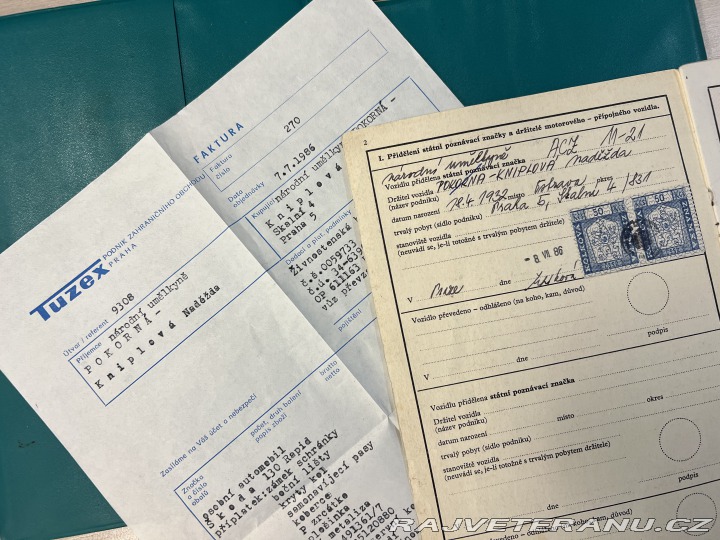 Tuzex
PODNIK ZAHRANIČNÍHO OBCHODU
PRAHA
Útvar / referent 9308
Příjemce
národní umělkyně
POKORNÁ -
Kniplová Naděžda
Zasíláme na Váš účet a nebezpečí
Značka
a číslo
obalů
počet, druh balení
popis zboží
brutto
netto
osobní automobil
Škoda 130 Rapid
příplatek:zámek schránky
boční lišty
kryty kol
samonavíjecí pasy
koberce
P zrcátko
metalíza
FAKTURA
Faktura
číslo
270
Datum
objednávky
7.7.1986
Kupující
národní umělkyně
POKORNÁ -
Kniplová
Skelní 4
Praha 5
Dodací a plat. podmínky
Živnostenská
č.š.0059733
OP 611163
vůz převz
pojištění
2
I. Přidělení státní poznávací značky a držitelé motorového - přípojného vozidla.
národní umělkyně
Vozidlu přidělena státní poznávací značka ACZ 11-21
Držitel vozidla POKORNÁ-KNIPLOVÁ Naděžda
(název podniku)
datum narození 18.4.1932 místo Ostrava okres
trvalý pobyt (sídlo podniku) Praha 5, Skalní 4/331
stanoviště vozidla
(neuvádí se, je-li totožné s trvalým pobytem držitele)
50 50
V Praze - 8 VII 86
Vozidlo převedeno - odhlášeno (na koho, kam, důvod)
V dne podpis
Vozidlu přidělena státní poznávací značka
Držitel vozidla
(název podniku)
datum narození místo okres
trvalý pobyt (sídlo podniku)
stanoviště vozidla
(neuvádí se, je-li totožné s trvalým pobytem držitele)
V dne
podpis
Vozidlo převedeno - odhlášeno (na koho, kam, důvod)
dne podpis
RAJVETERANU.CZ